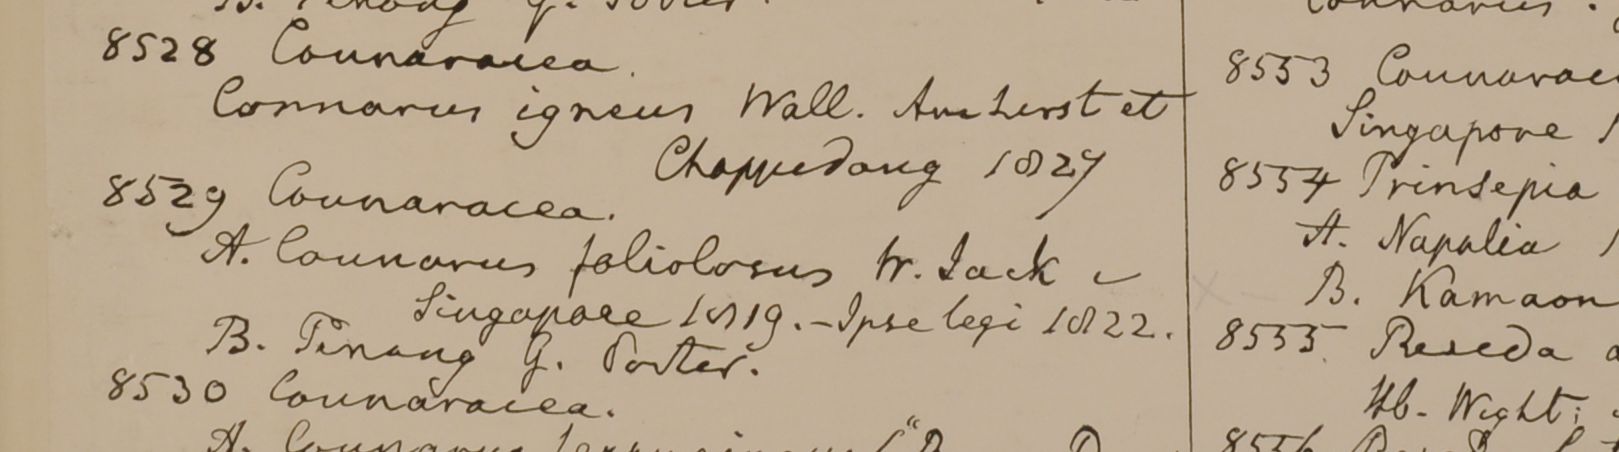 B. Penang G. Porter.
8528 Connaracea.
Connarus igneus Wall. Amherst et
Chappedong 1827
8529 Connaracea.
A. Connarus foliolosus W. Jack e
Singapore 1819. - Ipse legi 1822.
B. Penang G. Porter.
8530 Connaracea.
A. Connarus
Connarus
8553 Connarac
Singapore 1
8554 Prinsepia
A. Napalia 1
B. Kamaon
8555 Reseda a
Hb. Wight;
8556